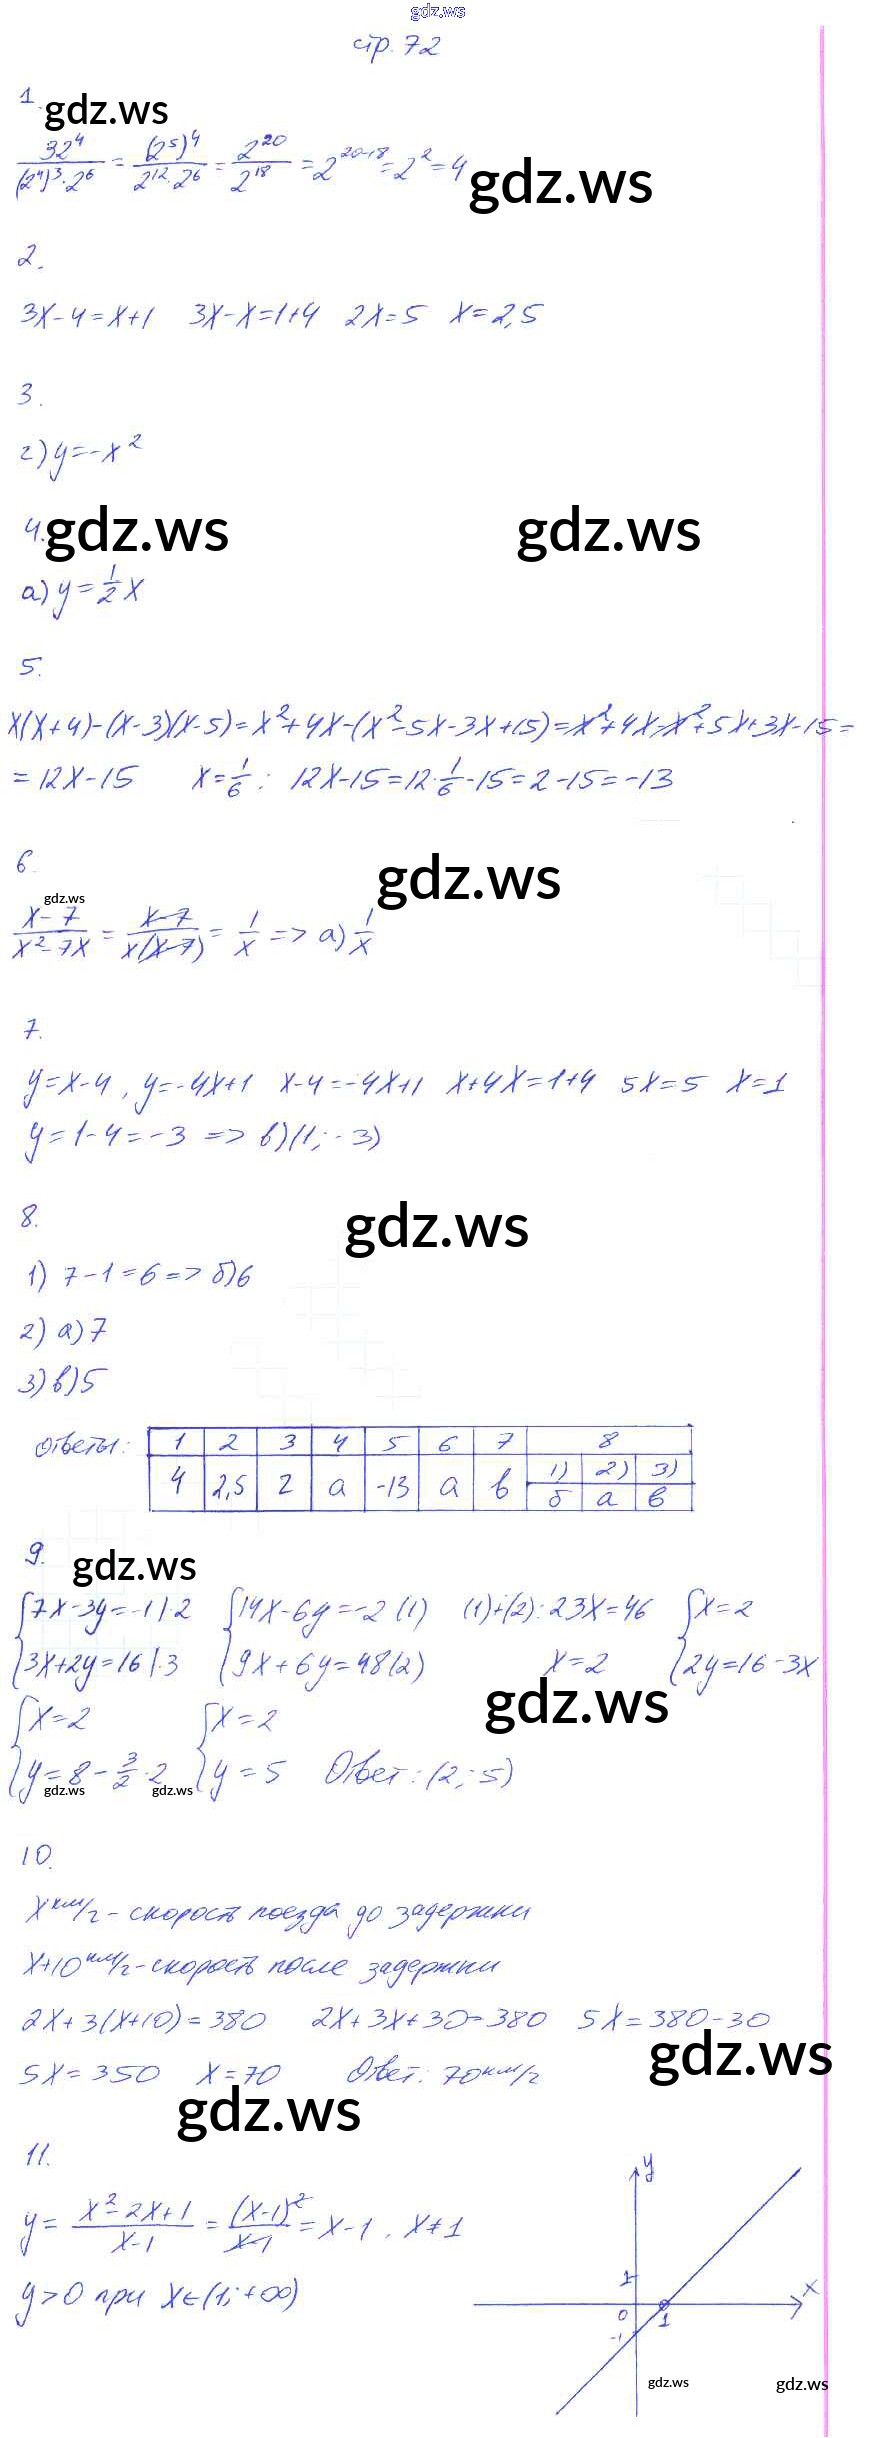 gdz.ws
стр. 72
1. gdz.ws
32⁴/((2⁴)³·2⁶) = (2⁵)⁴/(2¹²·2⁶) = 2²⁰/2¹⁸ = 2²⁰⁻¹⁸ = 2² = 4 gdz.ws
2.
3x-4=x+1 3x-x=1+4 2x=5 x=2,5
3.
г) y=-x²
4. gdz.ws gdz.ws
а) y=1/2 x
5.
x(x+4)-(x-3)(x-5)=x²+4x-(x²-5x-3x+15)=x²+4x-x²+5x+3x-15=
=12x-15 x=1/6: 12x-15=12·1/6-15=2-15=-13
6. gdz.ws
gdz.ws
(x-7)/(x²-7x) = (x-7)/(x(x-7)) = 1/x => а) 1/x
7.
y=x-4, y=-4x+1 x-4=-4x+1 x+4x=1+4 5x=5 x=1
y=1-4=-3 => в) (1; -3)
8. gdz.ws
1) 7-1=6 => б) 6
2) а) 7
3) в) 5
ответы: 1 2 3 4 5 6 7 8
4 2,5 г а -13 а в 1) 2) 3)
б а в
9. gdz.ws
{7x-3y=-1 |·2 {14x-6y=-2 (1) (1)+(2): 23x=46 {x=2
{3x+2y=16 |·3 {9x+6y=48 (2) x=2 {2y=16-3x
gdz.ws
{x=2 {x=2
{y=8-3/2·2 {y=5 Ответ: (2; 5)
gdz.ws gdz.ws
10.
x км/г - скорость поезда до задержки
x+10 км/г - скорость после задержки
2x+3(x+10)=380 2x+3x+30=380 5x=380-30
gdz.ws
5x=350 x=70 Ответ: 70 км/г
gdz.ws
11.
y = (x²-2x+1)/(x-1) = (x-1)²/(x-1) = x-1, x≠1
y>0 при x∈(1; +∞)
y
1
x
0 1
-1
gdz.ws gdz.ws